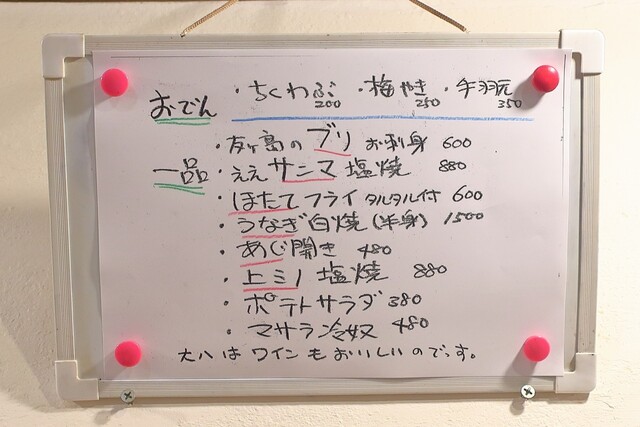 おでん ・ちくわぶ 200 ・梅やき 250 ・手羽元 350
・友ヶ島のブリお刺身 600
一品 ・ええサンマ塩焼 880
・ほたてフライ タルタル付 600
・うなぎ白焼(半身) 1500
・あじ開き 480
・上ミノ塩焼 880
・ポテトサラダ 380
・マサラ冷奴 480
大八はワインもおいしいのでっす。